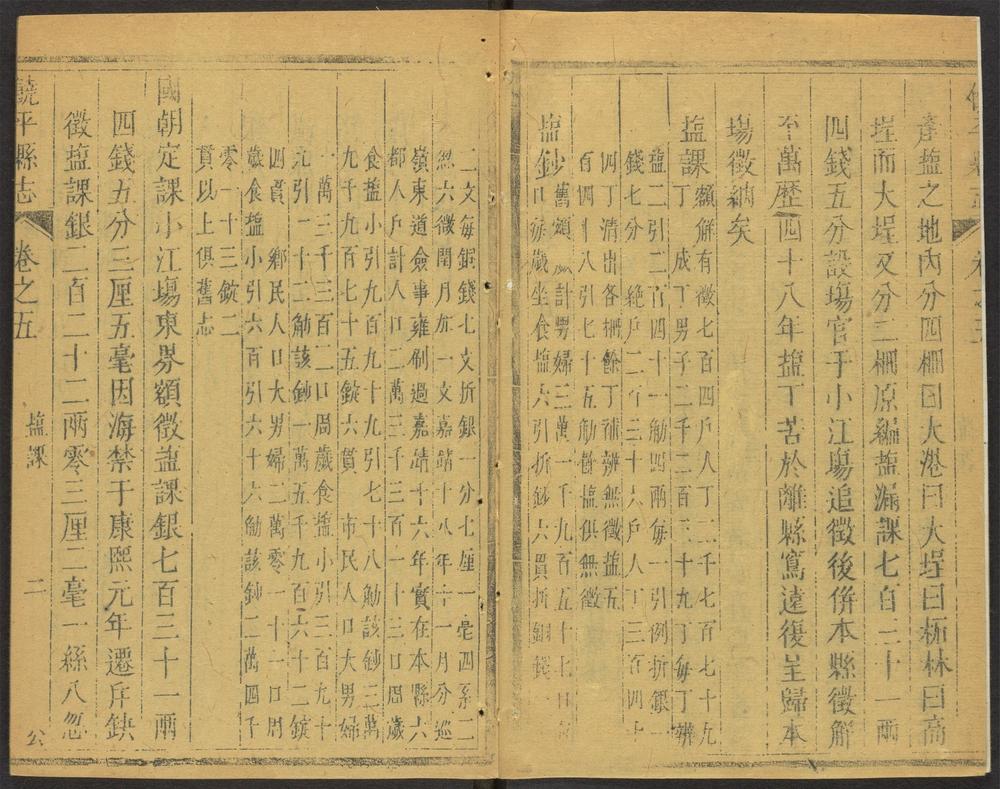 產塩之地內分四柵曰大港曰大埕曰柘林曰高
埕而大埕又分二柵原編塩漏課七百二十一兩
四錢五分設塲官于小江塲追徵後併本縣徵解
至萬歷四十八年塩丁苦於離縣寫遠復呈歸本
塲徵納矣
塩課額解有徵七百四戶人丁二千七百七十九
丁 成丁男子二千二百三十九丁每丁辨
塩二引二百四十一觔四兩每一引例折銀一
錢七分 絶戶二千三十六戶人丁三百四十
四丁清出各柵餘丁補辨無徵塩五
百四十八引七十五觔餘塩俱無徵
塩鈔舊額 計男婦三萬一千九百五十七口
口每歲坐食塩六引折鈔六貫折銅錢一
二文每銀錢七文折銀一分七厘一毫四系二
忽六微閏月加一文嘉靖十八年十一月分巡
嶺東道僉事雍刷過嘉靖十六年實在本縣六
都人戶計人口二萬三千三百一十三口周歲
食塩小引九百九十九引七十八觔該鈔三萬
九千九百七十五錠六貫 市民人口大男婦
一萬三千三百二口周歲食塩小引三百九十
九引二十二觔該鈔一萬五千九百六十二錠
四貫 鄉民人口大男婦二萬零一十一口周
歲食塩小引六百引六十六觔該鈔二萬四千
零一十三錠二
貫以上俱舊志
國朝定課小江塲東界額徵塩課銀七百三十一兩
四錢五分三厘五毫因海禁于康熙元年遷斥缺
徵塩課銀二百二十二兩零三厘二毫一絲八忽
饒平縣志 卷之五 塩課 二 公